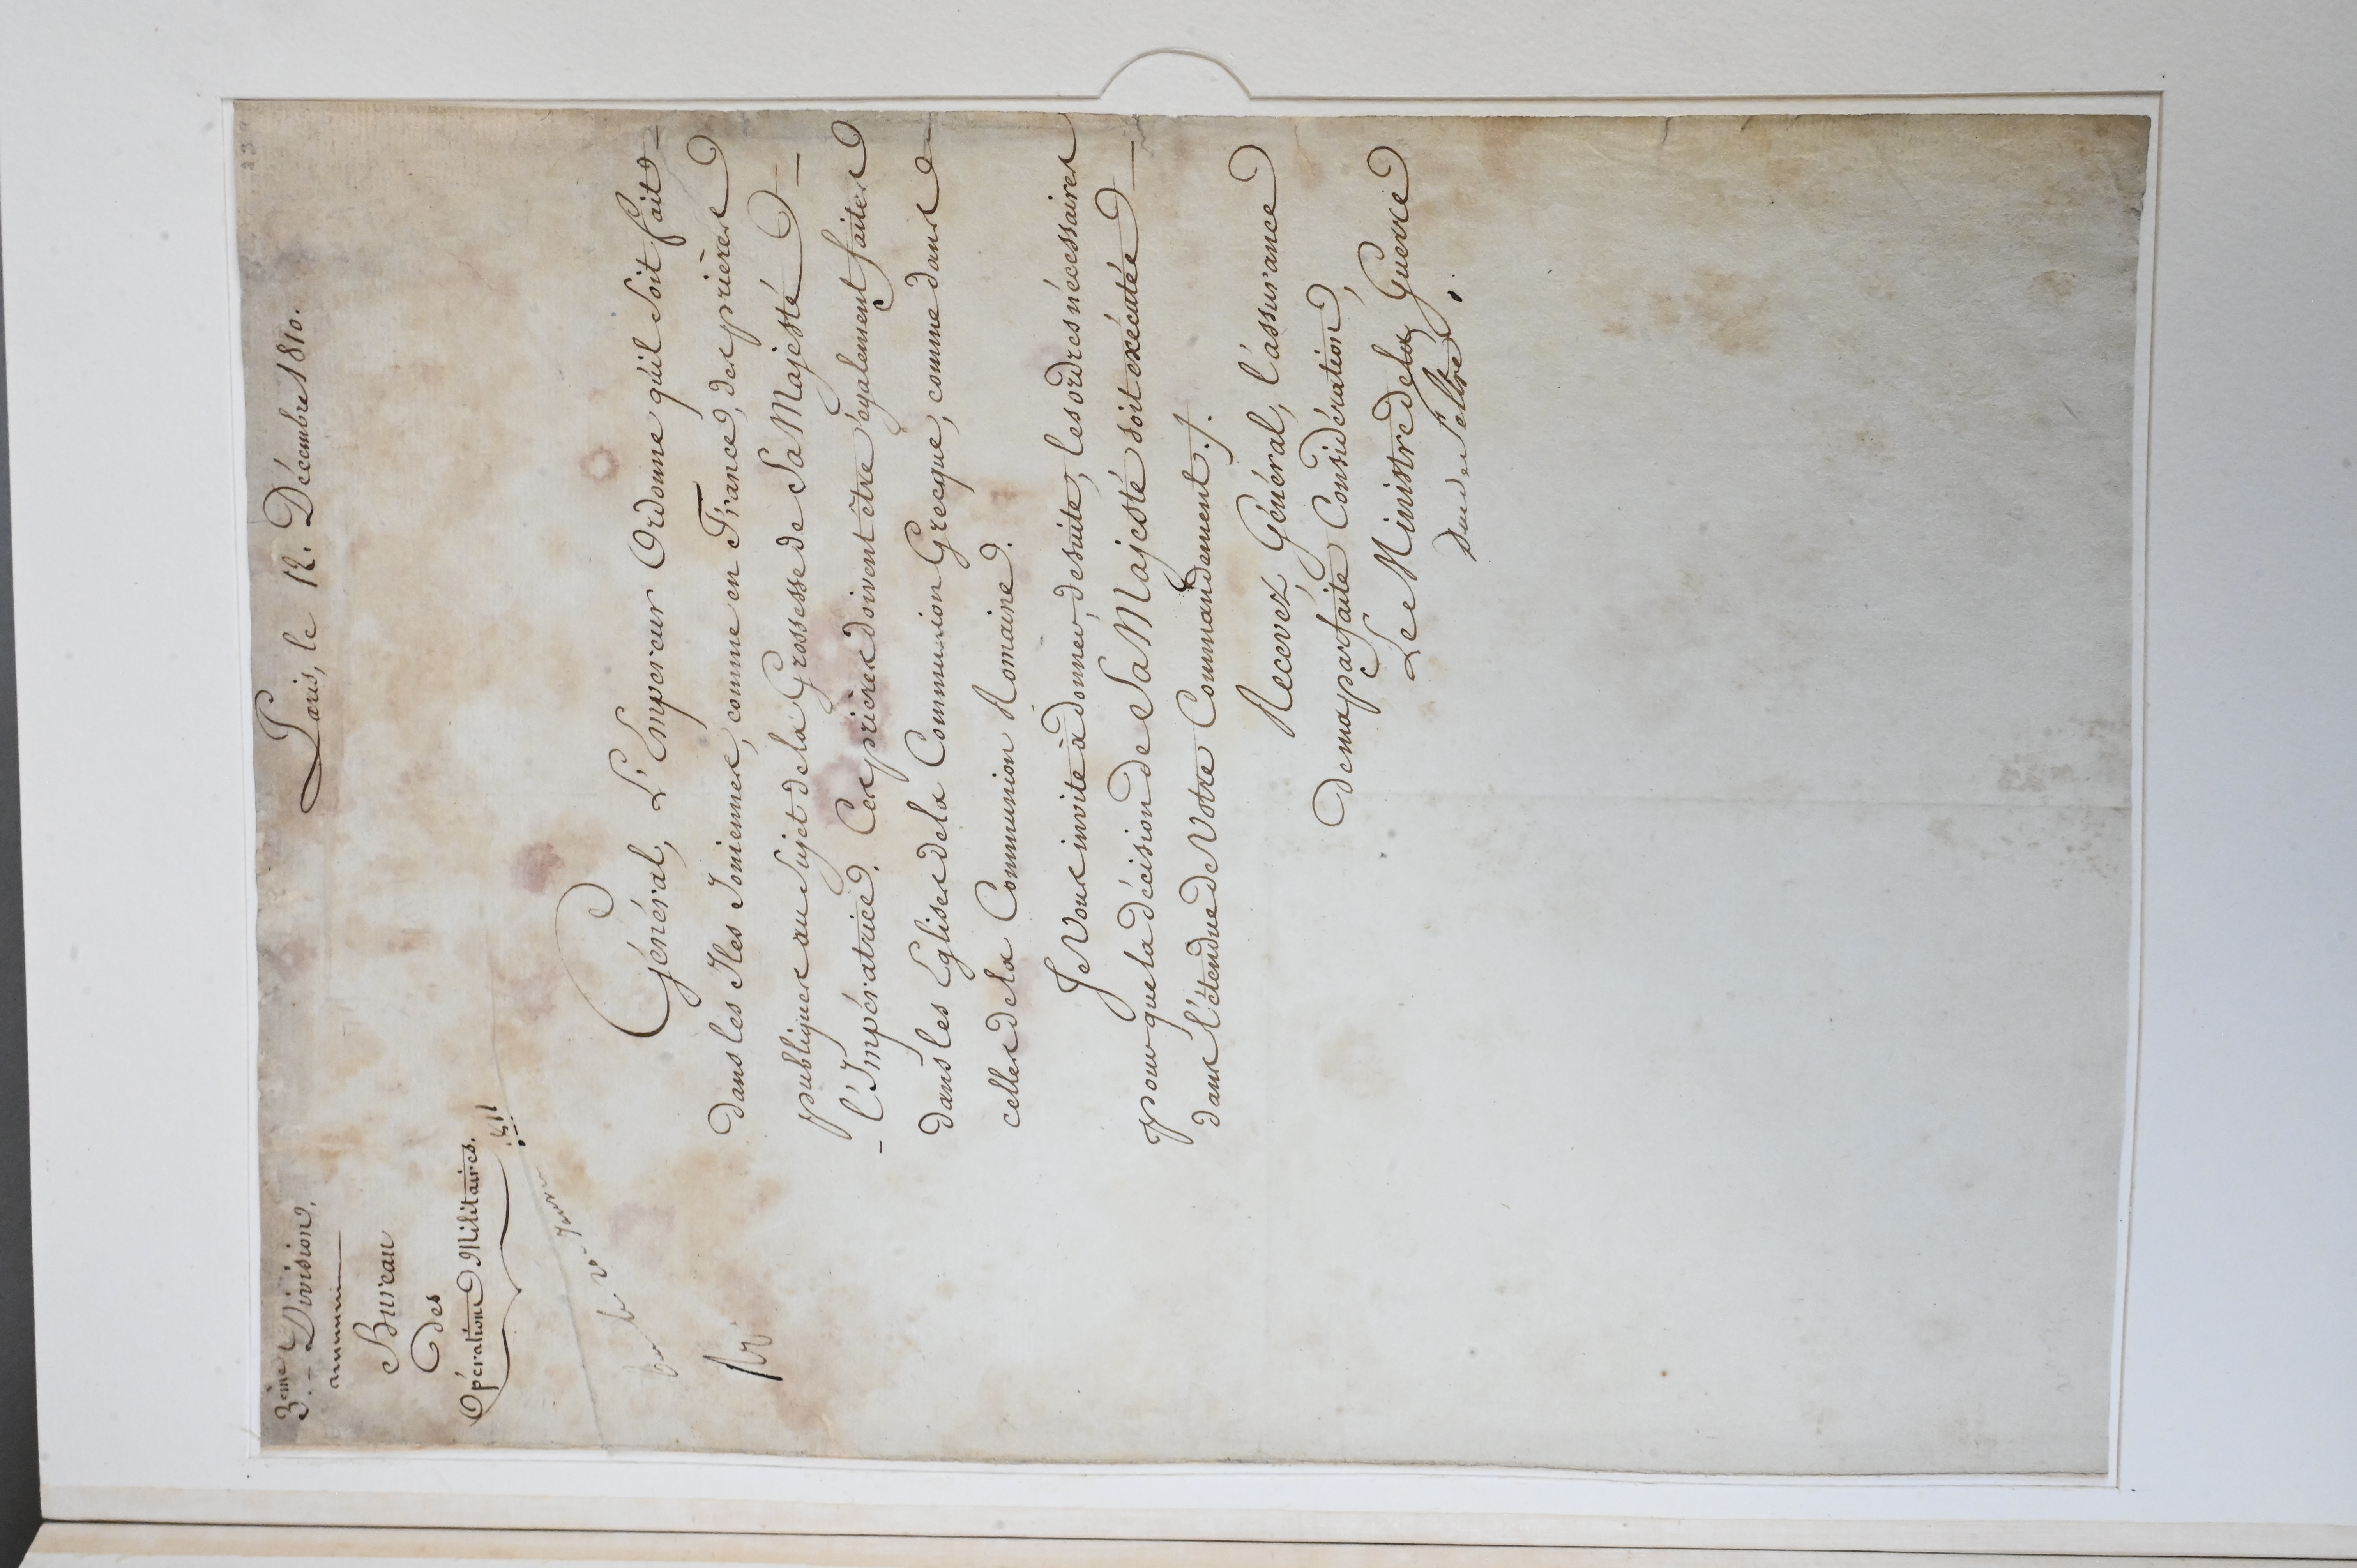 Paris, le 12. Décembre 1810.
3.ème Division.
Bureau
Des
Opérations Militaires.
Général, L'Empereur Ordonne qu'il Soit fait
dans les Iles Ioniennes, comme en France, des prières
publiques au Sujet de la Grossesse de Sa Majesté
l'Impératrice. Ces prières doivent être également faites
dans les Eglises de la Communion Grecque, comme dans
celles de la Communion Romaine.
Je Vous invite à donner, de suite, les ordres nécessaires
pour que la décision de Sa Majesté soit exécutée
dans l'étendue de Votre Commandement ./.
Recevez, Général, l'assurance
de ma parfaite Considération,
Le Ministre de la Guerre
Duc de Feltre.